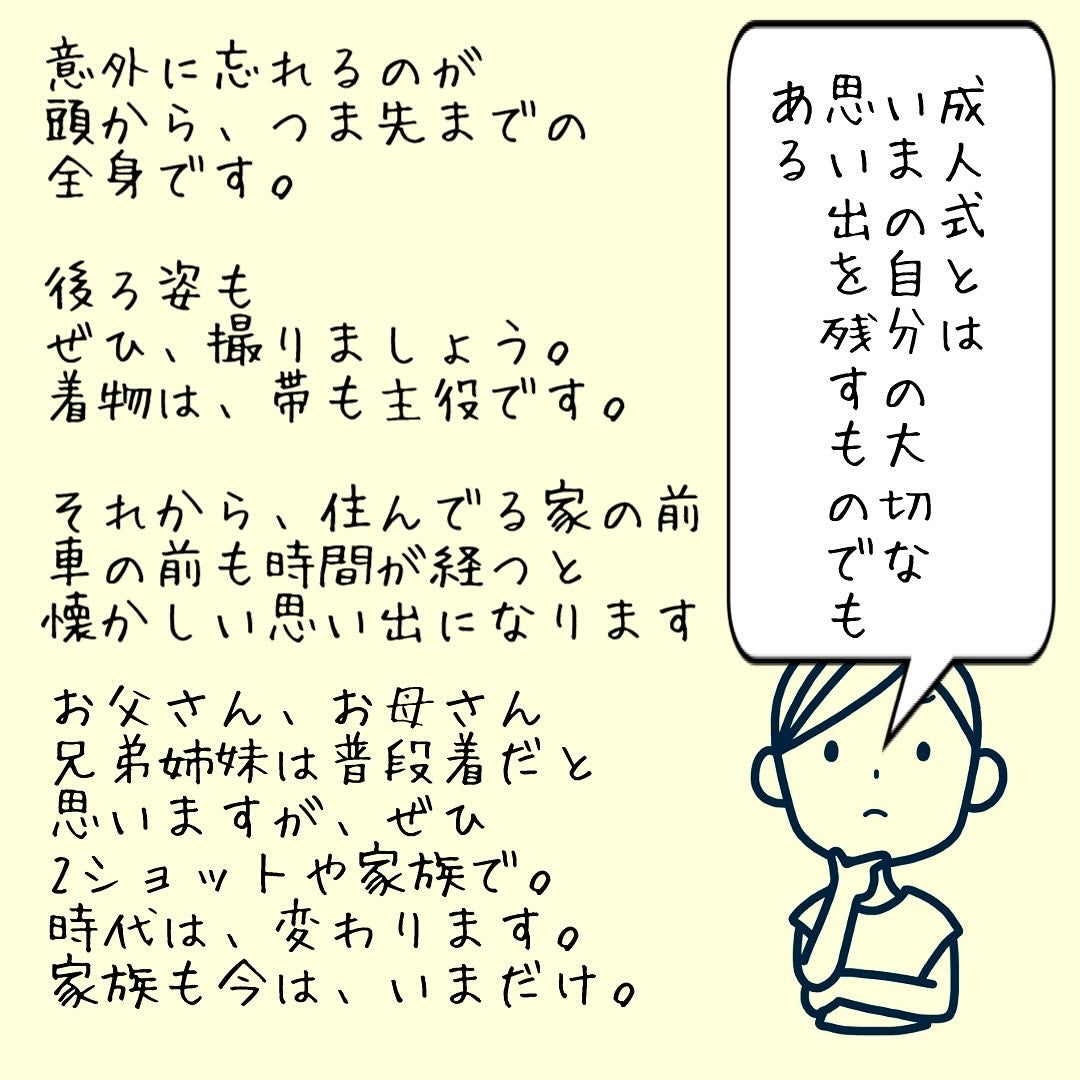 意外に忘れるのが
頭から、つま先までの
全身です。
後ろ姿も
ぜひ、撮りましょう。
着物は、帯も主役です。
それから、住んでる家の前
車の前も時間が経つと
懐かしい思い出になります
お父さん、お母さん
兄弟姉妹は普段着だと
思いますが、ぜひ
2ショットや家族で。
時代は、変わります。
家族も今は、いまだけ。
成人式とは
いまの自分の大切な
思い出を残すものでも
ある